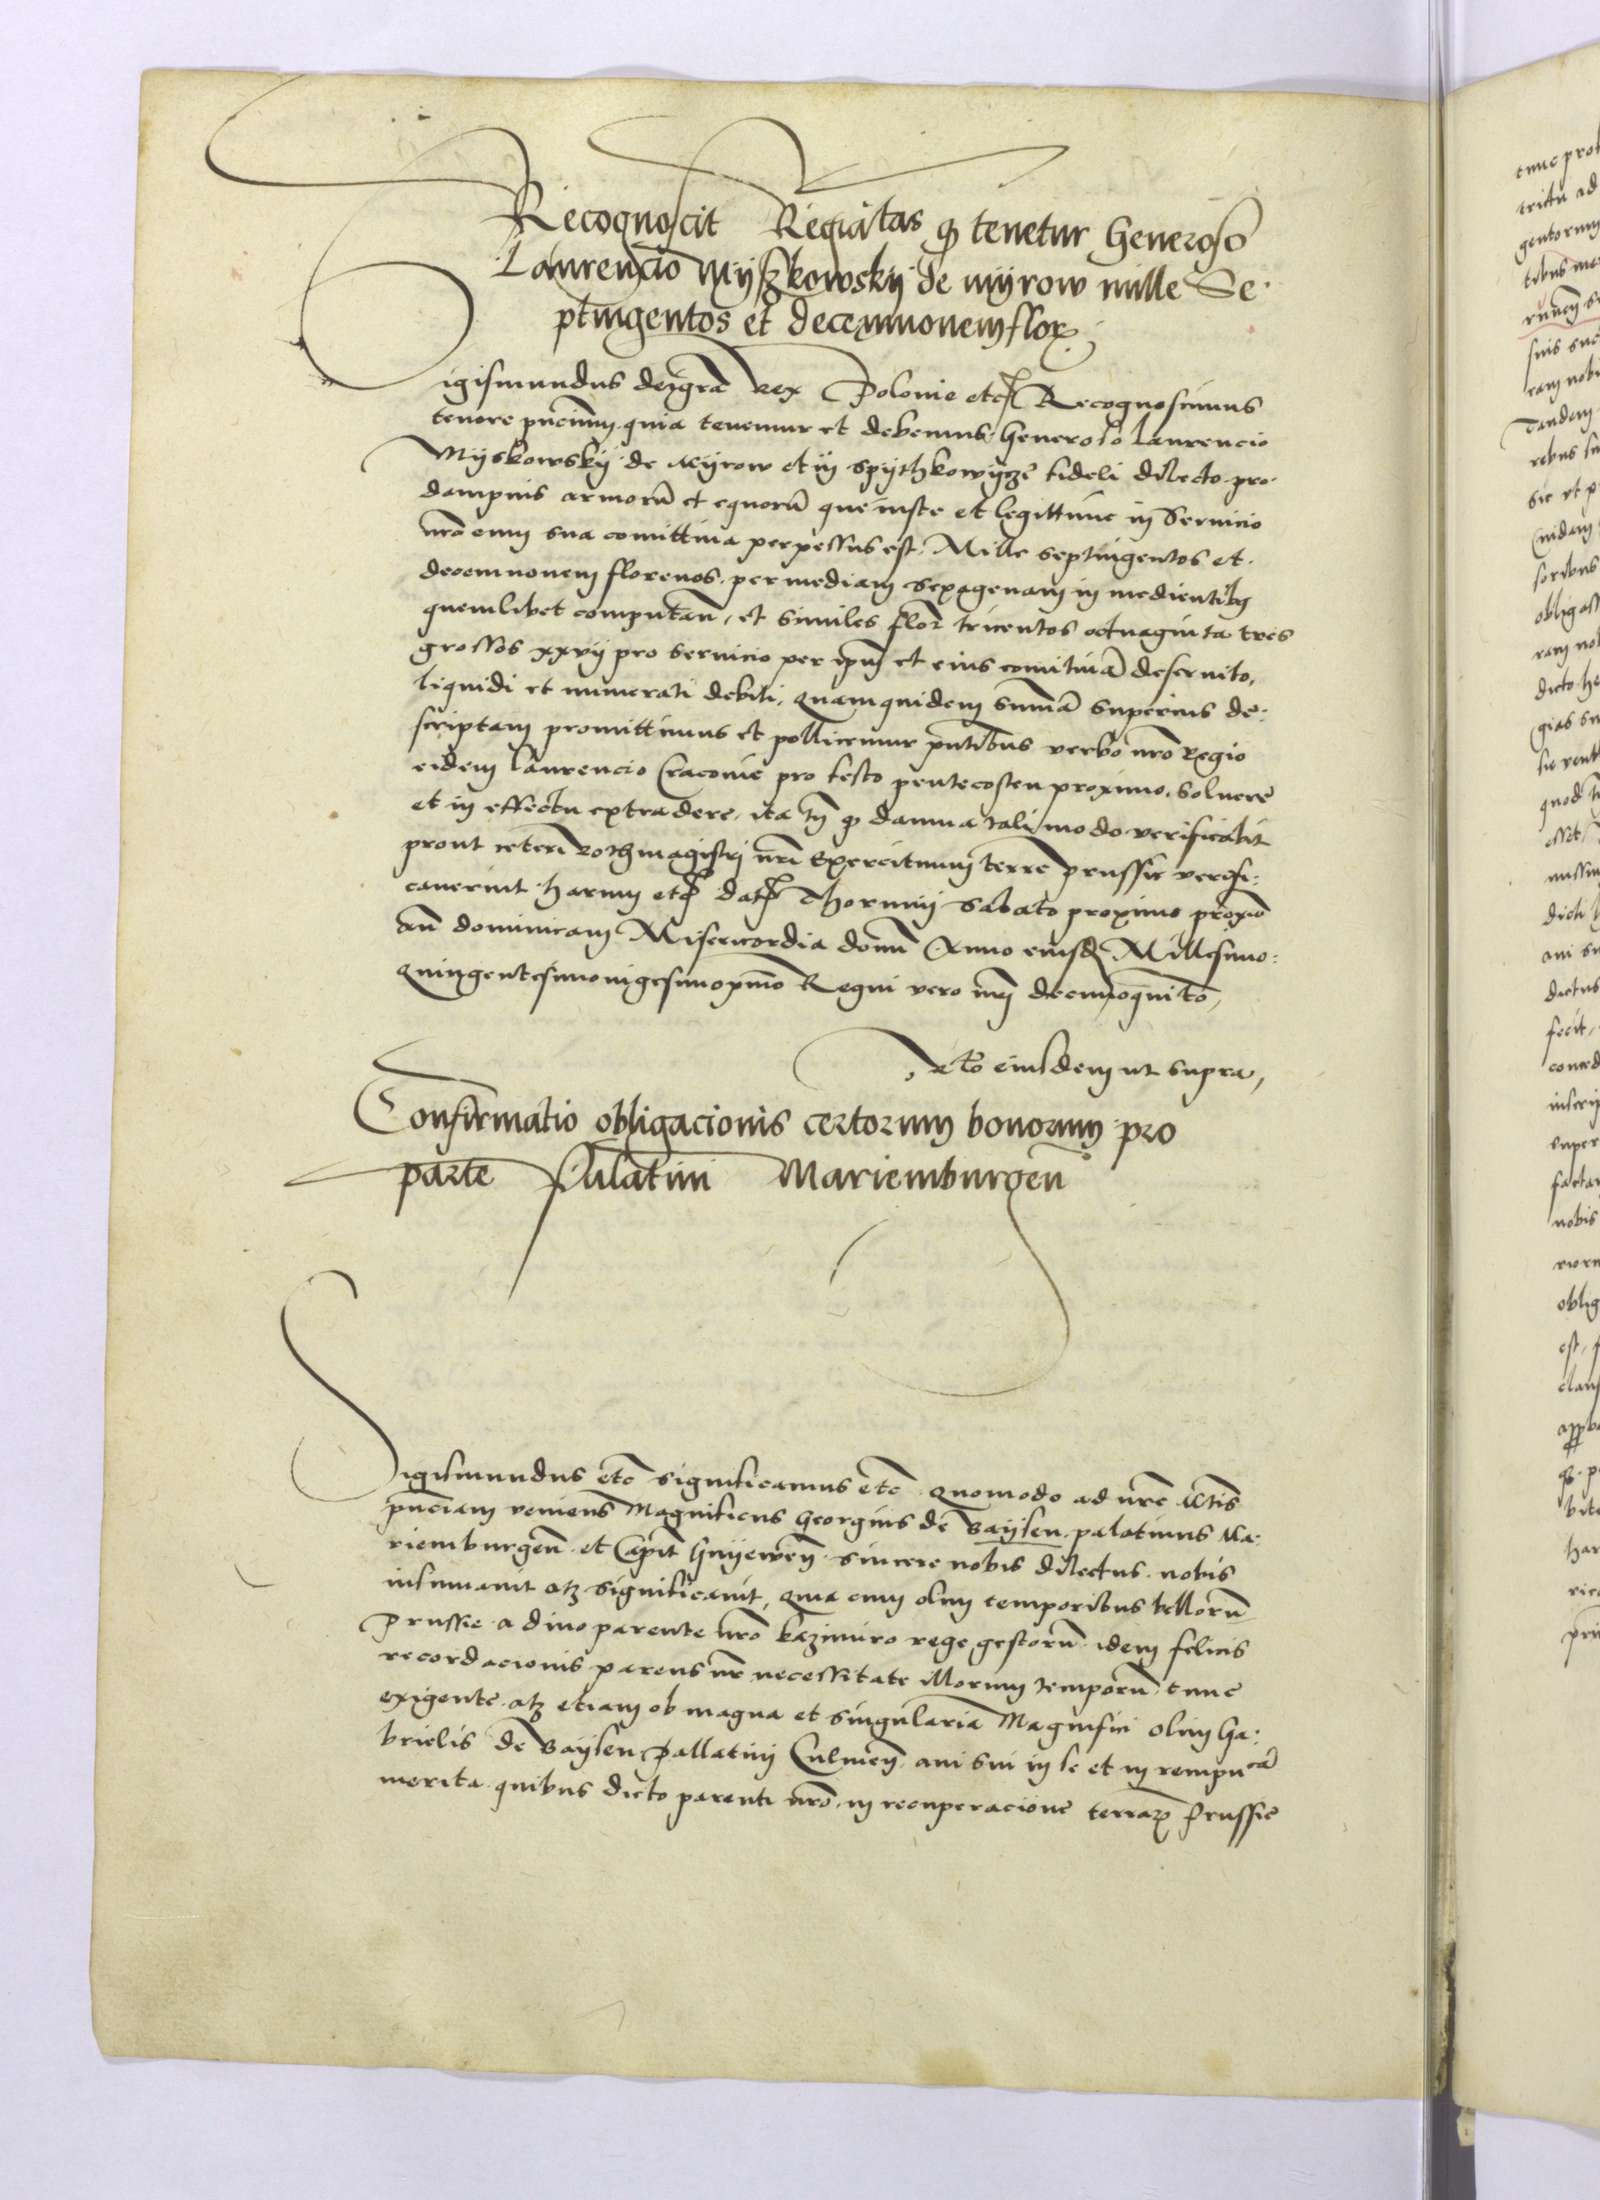 Recognoscit Regia mtas q tenetur Generoso
Laurencio Myszkowsky de myrow mille Se
ptingentos et decemnovem flor
Sigismundus dei gra rex Polonie etc Recognoscimus
tenore pncium quia tenemur et debemus Generoso Laurencio
Myskowsky de Myrow et in Spythkowycze fideli dilecto pro
dampnis armoru et equoru que iuste et legittime in Servicio
nro cum sua comittiva perpessus est Mille septingentos et
decemnovem florenos per mediam sexagenam in medientibus
quemlibet computan et similes flor tricentos octuaginta tres
grossos xxvij pro servicio per ipm et eius comitiva deservito
liquidi et numerati debiti quamquidem suma superius de
scriptam promittimus et pollicemur pntibus verbo nro Regio
eidem Laurencio Cracovie pro festo pentecosten proximo solvere
et in effectu extradere ita tn q damna tali modo verificabit
prout ceteri Rothmagistri nri Exercituum terre prussie verifi
caverint harum etc dat Thorunij Sabato proximo proximo
an dominicam Misericordia domi Anno eiusd Millesimo
Quingentesimo vigesimo primo Regni vero nri decimoquinto
Relatio eiusdem ut supra
Confirmatio obligacionis certorum bonorum pro
parte Palatini Mariemburgen
Sigismundus etc significamus etc Quomodo ad nre Mtis
pnciam veniens Magnificus Georgius de Baysen palatinus Ma
riemburgen et Capit Gnyewen sincere nobis dilectus nobis
insinuavit atz significavit quia cum olim temporibus belloru
Prussie a divo parente nro kazimiro rege gestoru idem felicis
recordacionis parens nr necessitate illorum temporu tunc
exigente atz etiam ob magna et singularia Magnifici olim Ga
brielis de Baysen Pallatini Culmen avi sui in se et in rempucam
merita quibus dicto parenti nro in recuperacione terrarum Prussie